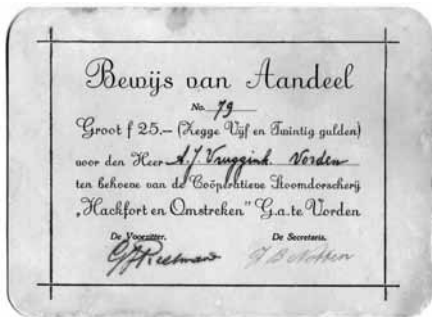 Bewijs van Aandeel
No. 79
Groot f 25.— (Zegge Vijf en Twintig gulden)
voor den Heer A.J. Vruggink. Vorden
ten behoeve van de Coöperatieve Stoomdorscherij
„Hackfort en Omstreken” G.a. te Vorden
De Voorzitter, De Secretaris.